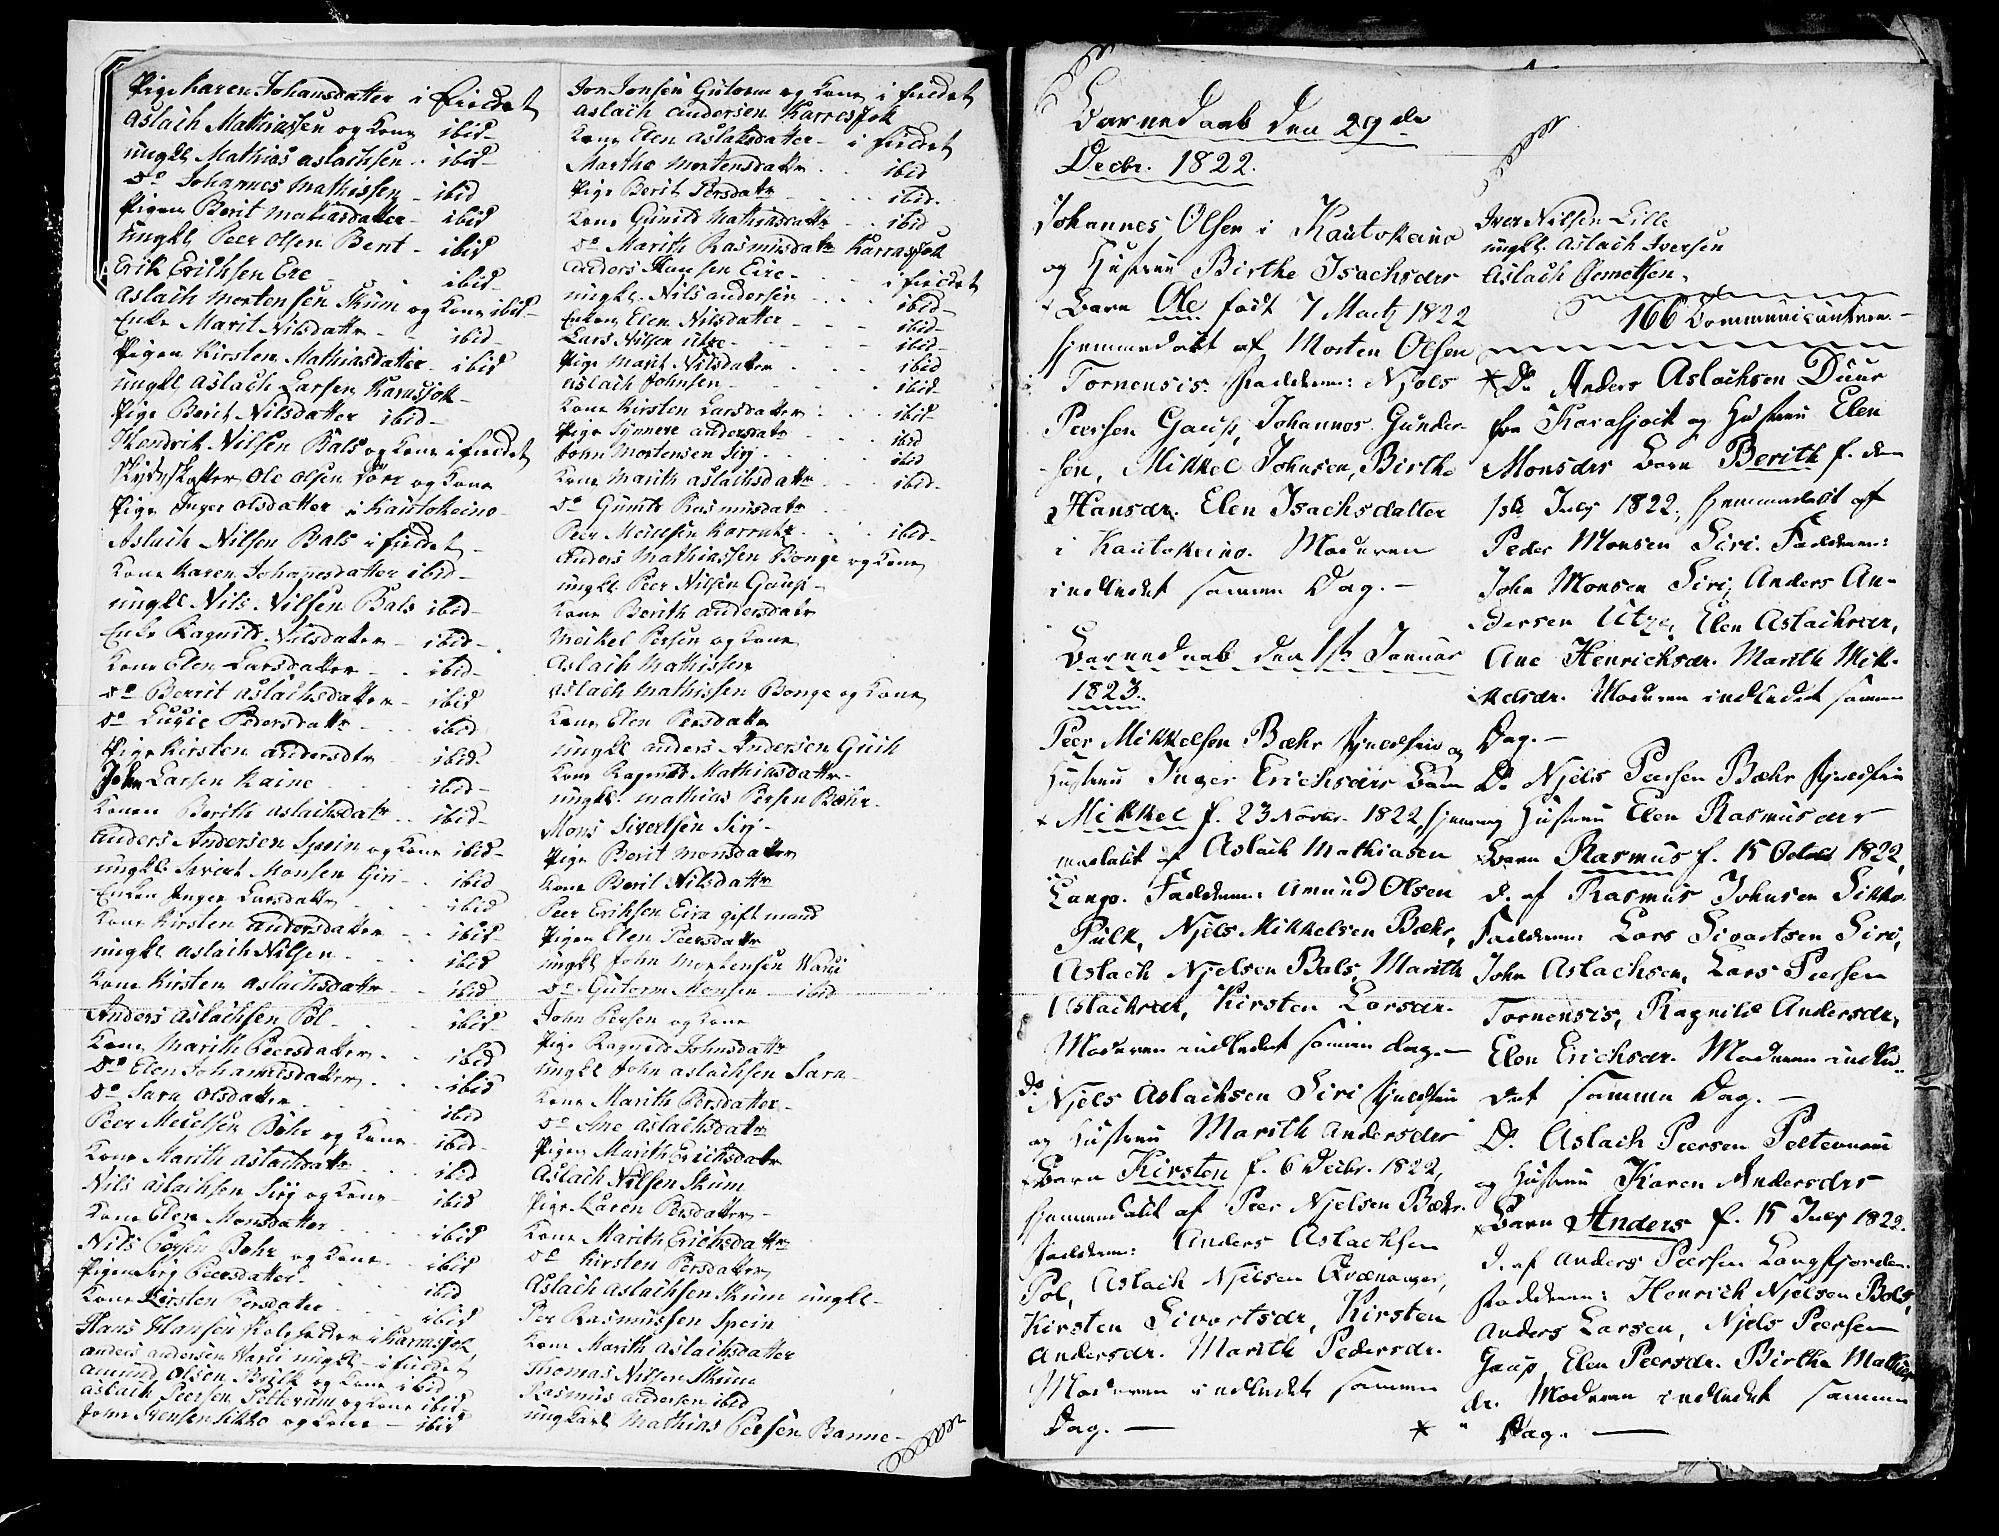 Pige Karen Johansdatter i fieldet
Aslach Mathiassen og Kone ibid
ungkl Mathias Aslachsen ibid
Do Johannes Mathissen ibid
Pigen Berit Mathiasdatter ibid
ungkl Peer Olsen Bent ibid
Erik Erichsen Ere ibid
Aslach Mortensen Skum og Kone ibid
Enke Marit Nilsdattr ibid
Pigen Kirsten Mathiasdatter ibid
ungkl Aslach Larsen Karasjok
Pige Berit Nilsdatter ibid
Hendrik Nilsen Bals og Kone i fieldet
Skydsskaffer Ole Olsen og Kone
Pige Inger Olsdatter i Kautokeino
Aslach Nilsen Bals i fieldet
Kone Karen Johannesdatter ibid
ungkl Nils Nilsen Bals ibid
Enke Ragnild Nilsdatter ibid
Kone Elen Larsdatter ibid
Do Berrit Aslachsdatter ibid
Do Lucie Pedersdattr ibid
Pige Kirsten Andersdtr ibid
John Larsen Kaine ibid
Konen Berith Aslachsdatr ibid
Anders Andersen Spein og Kone ibid
ungkl Sivert Monsen Giri ibid
Enken Inger Larsdattr ibid
Kone Kirsten Andersdatter ibid
ungkl Aslach Nilsen ibid
Kone Kirsten Aslachsdattr ibid
Anders Aslachsen Pol ibid
Kone Marith Peersdatter ibid
Do Elen Johannisdatter ibid
Do Sara Olsdatter ibid
Peer Mickelsen Bæhr og Kone ibid
Kone Marith Aslachsdattr ibid
Nils Aslachsen Sirj og Kone ibid
Kone Elen Monsdatter ibid
Nils Persen Bæhr og Kone ibid
Pigen Sirj Peersdatter ibid
Kone Kirsten Persdatter ibid
Hans Hansen Kolpholder i Karrasjok
Anders Andersen Warsi ungkl i fieldet
Amund Olsen Pulk og Kone ibid
Aslach Peersen Pelterum og Kone ibid
John Ivensen Sikko og Kone ibid
Jon Jonsen Gutorm og Kone i fieldet
Aslach Andersen Karresjok
Kone Elen Aslaksdatter i fieldet
Marthe Mortensdattr ibid
Pige Berit Persdattr ibid
Kone Gunild Mathiasdattr ibid
Do Marith Rasmusdatr Karrasjok
Anders Hansen Eire i fieldet
ungkl Nils Andersen ibid
Enken Elen Nilsdatter ibid
Lars Nilsen Utze ibid
Pige Marit Nilsdatter ibid
Aslach Johnsen ibid
Kone Kirsten Larsdatter ibid
Pige Synnere Andersdatr ibid
John Mortensen Sirj ibid
Kone Marith Aslachsdattr ibid
Do Gunild Rasmusdatr
Peer Meielsen ibid
Anders Mathiassen Bonge og Kone
ungkl Peer Nilsen Gaup
Kone Berith Andersdatr
Meikel Persen og Kone
Aslach Mathissen
Aslach Mathissen Bonge og Kone
Kone Elen Persdattr
ungkl Anders Andersen Guth
Kone Ragnild Mathiasdattr
ungkl Mathias Persen Bæhr
Mons Sivertsen Sirj
Pige Berit Monsdatter
Kone Berit Nilsdattr
Peer Erihsen Eira gift mand
Pigen Elen Peersdattr
ungkl John Mortensen Warsi
Do Gutorm Monsen ibid
John Persen og Kone
Pige Ragnild Johnsdattr
ungkl John Aslachsen Sara
Kone Marith Persdatter
Do Ane Aslachsdatr
Pigen Marith Erichsdatr
Aslach Nilsen Skum
Pige Karen Persdatter
Kone Marith Erichsdattr
Do Kirsten Persdatter
Aslach Aslachsen Skum ungkl
Per Rasmussen Spein
Kone Marith Aslachsdatter
Thomas Nilsen Skum
Rasmus Andersen ibid
ungkarl Mathias Persen Banne
Barnedaab den 29de
Decbr. 1822.
Johannes Olsen i Kautokeino
og Hustrue Birthe Isachsdtr
Barn Ole født 7 Martz 1822
hjemmedøbt af Morten Olsen
Tornensis. Fadderne: Njels
Peersen Gaup, Johannes Gunder-
sen, Mikkel Johnsen, Birthe
Hansdr. Elen Isachsdatter
i Kautokeino. Moderen
indledet samme Dag. -
Barnedaab den 1ste Januar
1823.
Peer Mikkelsen Bæhr fjeldfin og
Hustrue Inger Erichsdtr Barn
Mikkel f. 23 Novbr. 1822, hjem-
medøbt af Aslach Mathiasen
Lango. Fadderne: Amund Olsen
Pulk, Njels Mikkelsen Bæhr,
Aslach Njelsen Bals, Marith
Aslachsdr, Kirsten Larsdr.
Moderen indledet samme dag. -
Do Njels Aslachsen Siri fjeldfin
og Hustrue Marith Andersdtr
Barn Kirsten f. 6 Decbr. 1822,
hjemmedøbt af Peer Njelsen Bæhr.
Fadderne: Anders Aslachsen
Pol, Aslach Njelsen Qvænanger,
Kirsten Sivertsdr, Kirsten
Andersdr. Marith Pedersdr.
Moderen indledet samme
Dag. -
Iver Nilsen Lille
ungkl. Aslach Iversen
Aslach Clemetsen.
166 Communicantere
* Do Anders Aslachsen Duur
fra Karasjock og Hustrue Elen
Monsdtr Barn Berith f. den
1ste July 1822, hjemmedøbt af
Peder Monsen Siri. Fadderne:
John Monsen Siri, Anders An-
dersen Utze, Elen Aslachsdr,
Ane Henrichsdr. Marith Mik-
kelsdr. Moderen indledet samme
Dag. -
Do Njels Peersen Bæhr fjeldfin
og Hustrue Elen Rasmusdtr
Barn Rasmus f. 15 Octob 1822,
d. af Rasmus Johnsen Sikko.
Fadderne Lars Sivertsen Siri,
John Aslachsen, Lars Peersen
Tornensis, Ragnild Andersdr,
Elen Erichsdr. Moderen indle-
det samme Dag. -
Do. Aslach Peersen Peltevuom
og Hustrue Karen Andersdtr
Barn Anders f. 15 July 1822.
d. af Anders Peersen Langfjorden
Fadderne: Henrich Njelsen Bals,
Anders Larsen, Njels Peersen
Gaup, Elen Peersdr. Birthe Mathies
dr. Moderen indledet samme
* " Dag. -